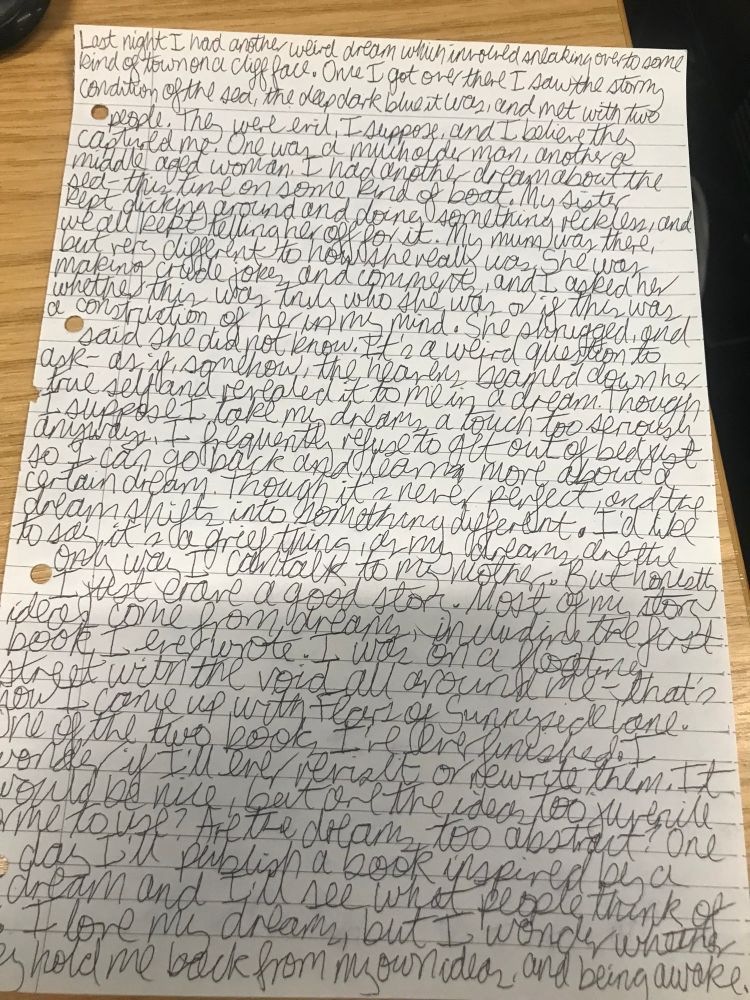 Last night I had another weird dream which involved sneaking over to some
kind of town on a cliff face. Once I got over there I saw the stormy
condition of the sea, the deep dark blue it was, and met with two
people. They were evil, I suppose, and I believe they
captured me. One was a man, another a
middle aged woman. I had another dream about the
sea - this time on some kind of boat. My sister
kept dicking around and doing something reckless, and
we all kept telling her off for it. My mum was there,
but very different to how she really was. She was
making crude jokes and comments, and I asked her
whether this was truly who she was or if this was
a construction of her in my mind. She shrugged, and
said she did not know. It's a weird question to
ask - as if, somehow, the heavens beamed down her
true self and revealed it to me in a dream. Though
I suppose I take my dreams a touch too seriously
anyways. I frequently refuse to get out of bed just
so I can go back and learn more about a
certain dream. Though it's never perfect, and the
dream shifts into something different. I'd like
to say it's a grief thing, as my dreams are the
only way I can talk to my mother. But honestly
I just crave a good story. Most of my story
ideas come from dreams, including the first
book I ever wrote. I was on a floating
street with the void all around me - that's
how I came up with Fears of Sunnyside Lane.
One of the two books I've ever finished. I
wonder if I'll ever revisit or rewrite them. It
would be nice, but are the ideas too juvenile
me to use? Are the dreams too abstract? One
day I'll publish a book inspired by a
dream and I'll see what people think of
I love my dreams, but I wonder whether
hold me back from my own ideas, and being awake.